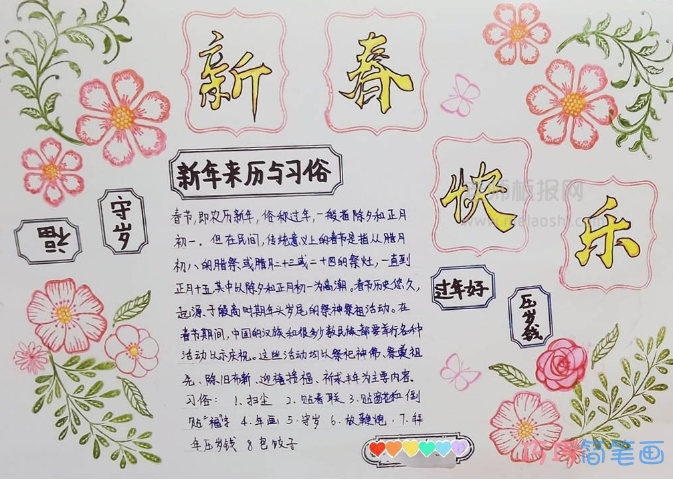 新春快乐
新年来历与习俗
守岁
福
过年好
压岁钱
春节,即农历新年,俗称过年,一般指除夕和正月
初一。但在民间,传统意义上的春节是指从腊月
初八的腊祭或腊月二十三或二十四的祭灶,一直到
正月十五,其中以除夕和正月初一为高潮。春节历史悠久,
起源于殷商时期年头岁尾的祭神祭祖活动。在
春节期间,中国的汉族和很多少数民族都要举行各种
活动以示庆祝。这些活动均以祭祀神佛、祭奠祖
先、除旧布新、迎禧接福、祈求丰年为主要内容。
习俗: 1.扫尘 2.贴春联 3.贴窗花和倒
贴"福"字 4.年画 5.守岁 6.放鞭炮 7.拜
年压岁钱 8包饺子
老师板报网
简笔画